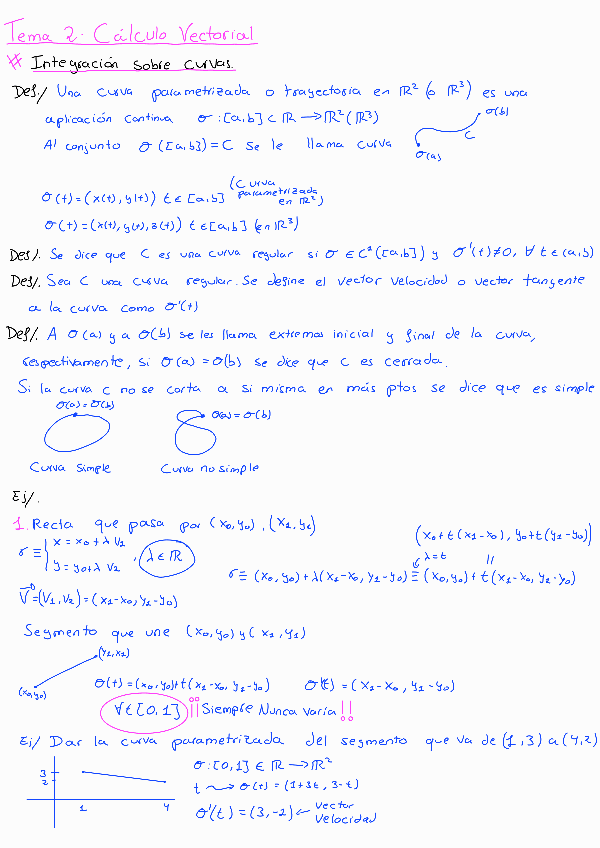 Tema 2. Cálculo Vectorial
* Integración sobre curvas.
Def./ Una curva parametrizada o trayectoria en ℝ² (o ℝ³) es una
aplicación continua σ:[a,b] ⊂ ℝ → ℝ² (ℝ³)
σ(b)
Al conjunto σ([a,b]) = C se le llama curva
C
σ(a)
σ(t) = (x(t), y(t)) t ∈ [a,b] (Curva parametrizada en ℝ²)
σ(t) = (x(t), y(t), z(t)) t ∈ [a,b] (en ℝ³)
Def/. Se dice que C es una curva regular si σ ∈ C¹([a,b]) y σ'(t) ≠ 0, ∀ t ∈ (a,b)
Def/. Sea C una curva regular. Se define el vector velocidad o vector tangente
a la curva como σ'(t)
Def/. A σ(a) y a σ(b) se les llama extremos inicial y final de la curva,
respectivamente, si σ(a) = σ(b) se dice que C es cerrada.
Si la curva C no se corta a si misma en más ptos se dice que es simple
σ(a) = σ(b)
σ(a) = σ(b)
Curva simple
Curva no simple
Ej/.
1. Recta que pasa por (x₀,y₀), (x₁,y₁)
r ≡ { x = x₀ + λ V₁
y = y₀ + λ V₂ , λ ∈ ℝ
(x₀ + t(x₁-x₀), y₀ + t(y₁-y₀))
λ = t
||
r ≡ (x₀,y₀) + λ(x₁-x₀, y₁-y₀) ≡ (x₀,y₀) + t(x₁-x₀, y₁-y₀)
V = (V₁, V₂) = (x₁-x₀, y₁-y₀)
Segmento que une (x₀,y₀) y (x₁,y₁)
(y₁,x₁)
(x₀,y₀)
σ(t) = (x₀,y₀) + t(x₁-x₀, y₁-y₀)
σ'(t) = (x₁-x₀, y₁-y₀)
∀t [0,1] ¡¡Siempre Nunca varía!!
Ej/ Dar la curva parametrizada del segmento que va de (1,3) a (4,2)
3
2
1
4
σ:[0,1] ∈ ℝ → ℝ²
t ⇝ σ(t) = (1+3t, 3-t)
σ'(t) = (3,-2) ← vector velocidad